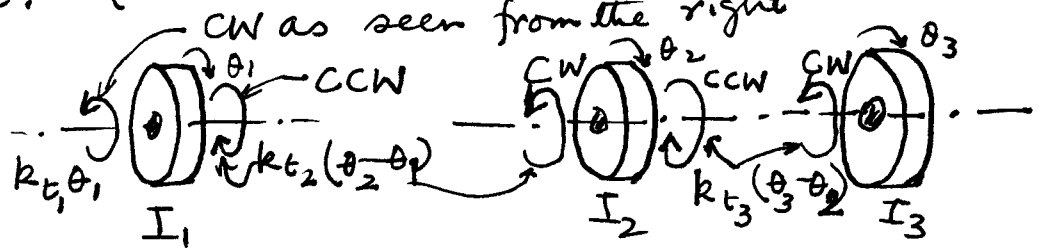 CW as seen from the right
θ1 CCW CW θ2 CCW CW θ3
kt1θ1 kt2(θ2-θ1) kt3(θ3-θ2)
I1 I2 I3